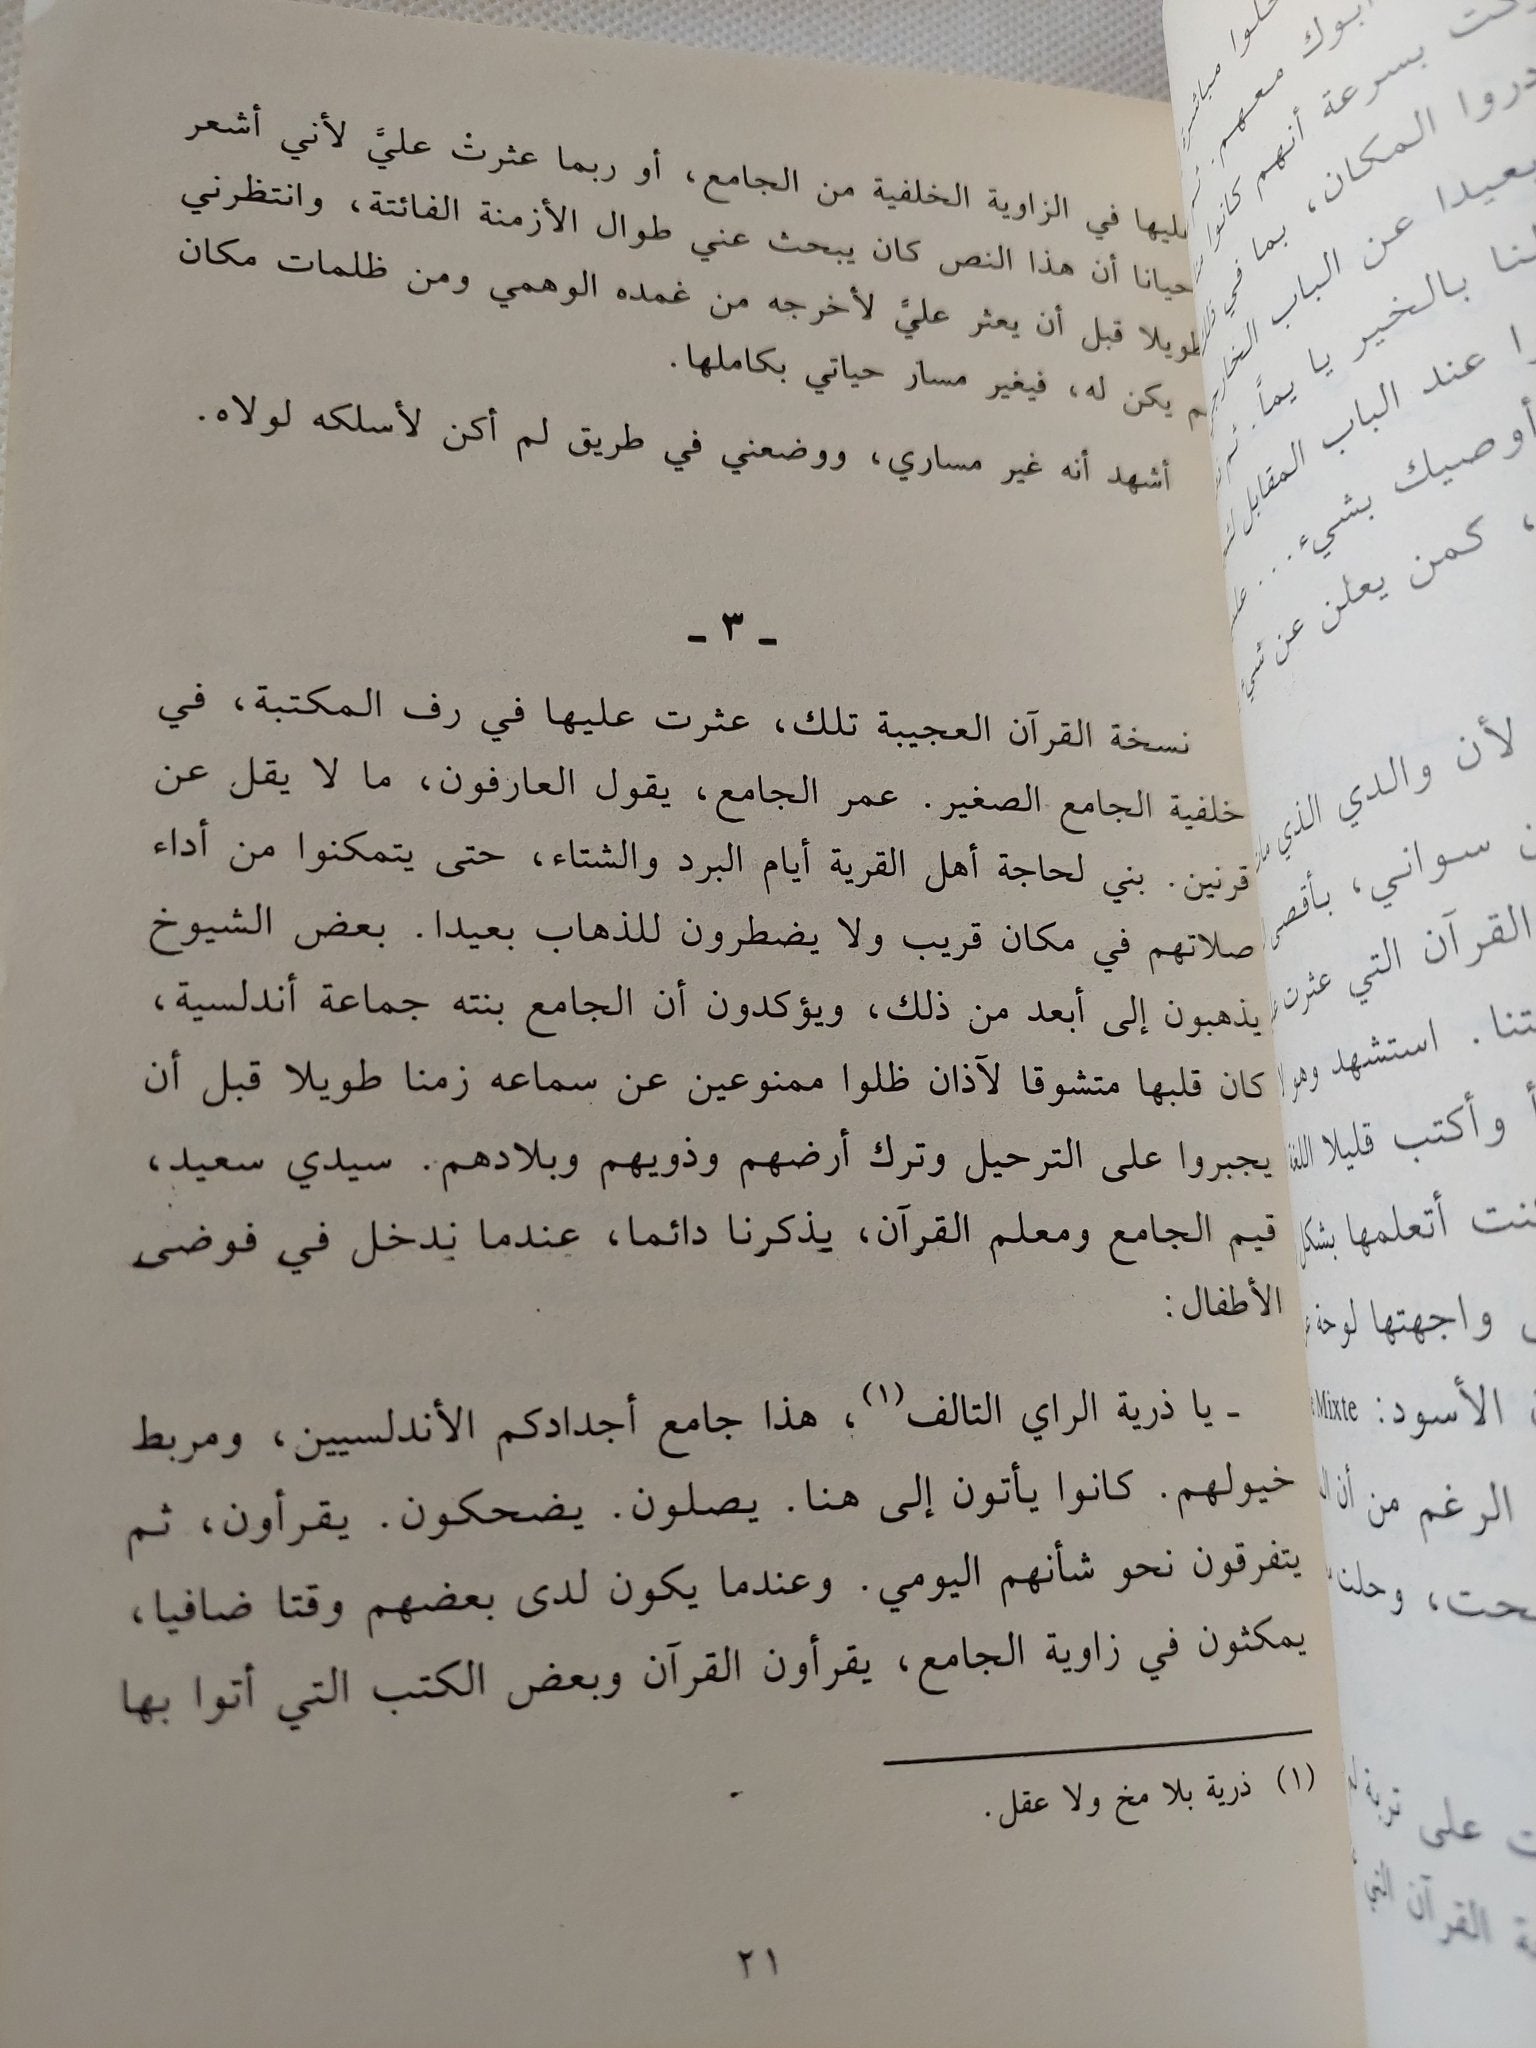 في الزاوية الخلفية من الجامع، أو ربما عثرتْ عليَّ لأني أشعر
أن هذا النص كان يبحث عني طوال الأزمنة الفائتة، وانتظرني
طويلا قبل أن يعثر عليَّ لأخرجه من غمده الوهمي ومن ظلمات مكان
يكن له، فيغير مسار حياتي بكاملها.
أشهد أنه غير مساري، ووضعني في طريق لم أكن لأسلكه لولاه.
ـ ٣ ـ
نسخة القرآن العجيبة تلك، عثرت عليها في رف المكتبة، في
خلفية الجامع الصغير. عمر الجامع، يقول العارفون، ما لا يقل عن
قرنين. بني لحاجة أهل القرية أيام البرد والشتاء، حتى يتمكنوا من أداء
صلاتهم في مكان قريب ولا يضطرون للذهاب بعيدا. بعض الشيوخ
يذهبون إلى أبعد من ذلك، ويؤكدون أن الجامع بنته جماعة أندلسية،
كان قلبها متشوقا لآذان ظلوا ممنوعين عن سماعه زمنا طويلا قبل أن
يجبروا على الترحيل وترك أرضهم وذويهم وبلادهم. سيدي سعيد،
قيم الجامع ومعلم القرآن، يذكرنا دائما، عندما ندخل في فوضى
الأطفال:
ـ يا ذرية الراي التالف(١)، هذا جامع أجدادكم الأندلسيين، ومربط
خيولهم. كانوا يأتون إلى هنا. يصلون. يضحكون. يقرأون، ثم
يتفرقون نحو شأنهم اليومي. وعندما يكون لدى بعضهم وقتا ضافيا،
يمكثون في زاوية الجامع، يقرأون القرآن وبعض الكتب التي أتوا بها
(١) ذرية بلا مخ ولا عقل.
٢١
أبوك معهم.
بسرعة أنهم كانوا
المكان، بما في
بعيدا عن الباب
بالخير يا يماً. ثم
عند الباب المقابل
أوصيك بشيء...
، كمن يعلن عن
لأن والدي الذي
سواني، بأقصى
القرآن التي عثرت
استشهد وهو
وأكتب قليلا
أتعلمها بشكل
واجهتها لوحة
الأسود: Mixte
الرغم من أن
على تربة
القرآن التي